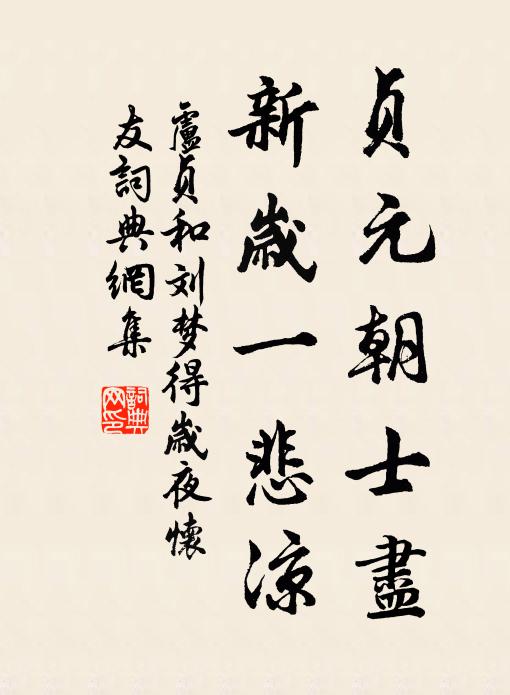 贞元朝士盡
新歲一悲涼
盧贞和刘梦得歲夜懷
友詞典網集
詞典
网印